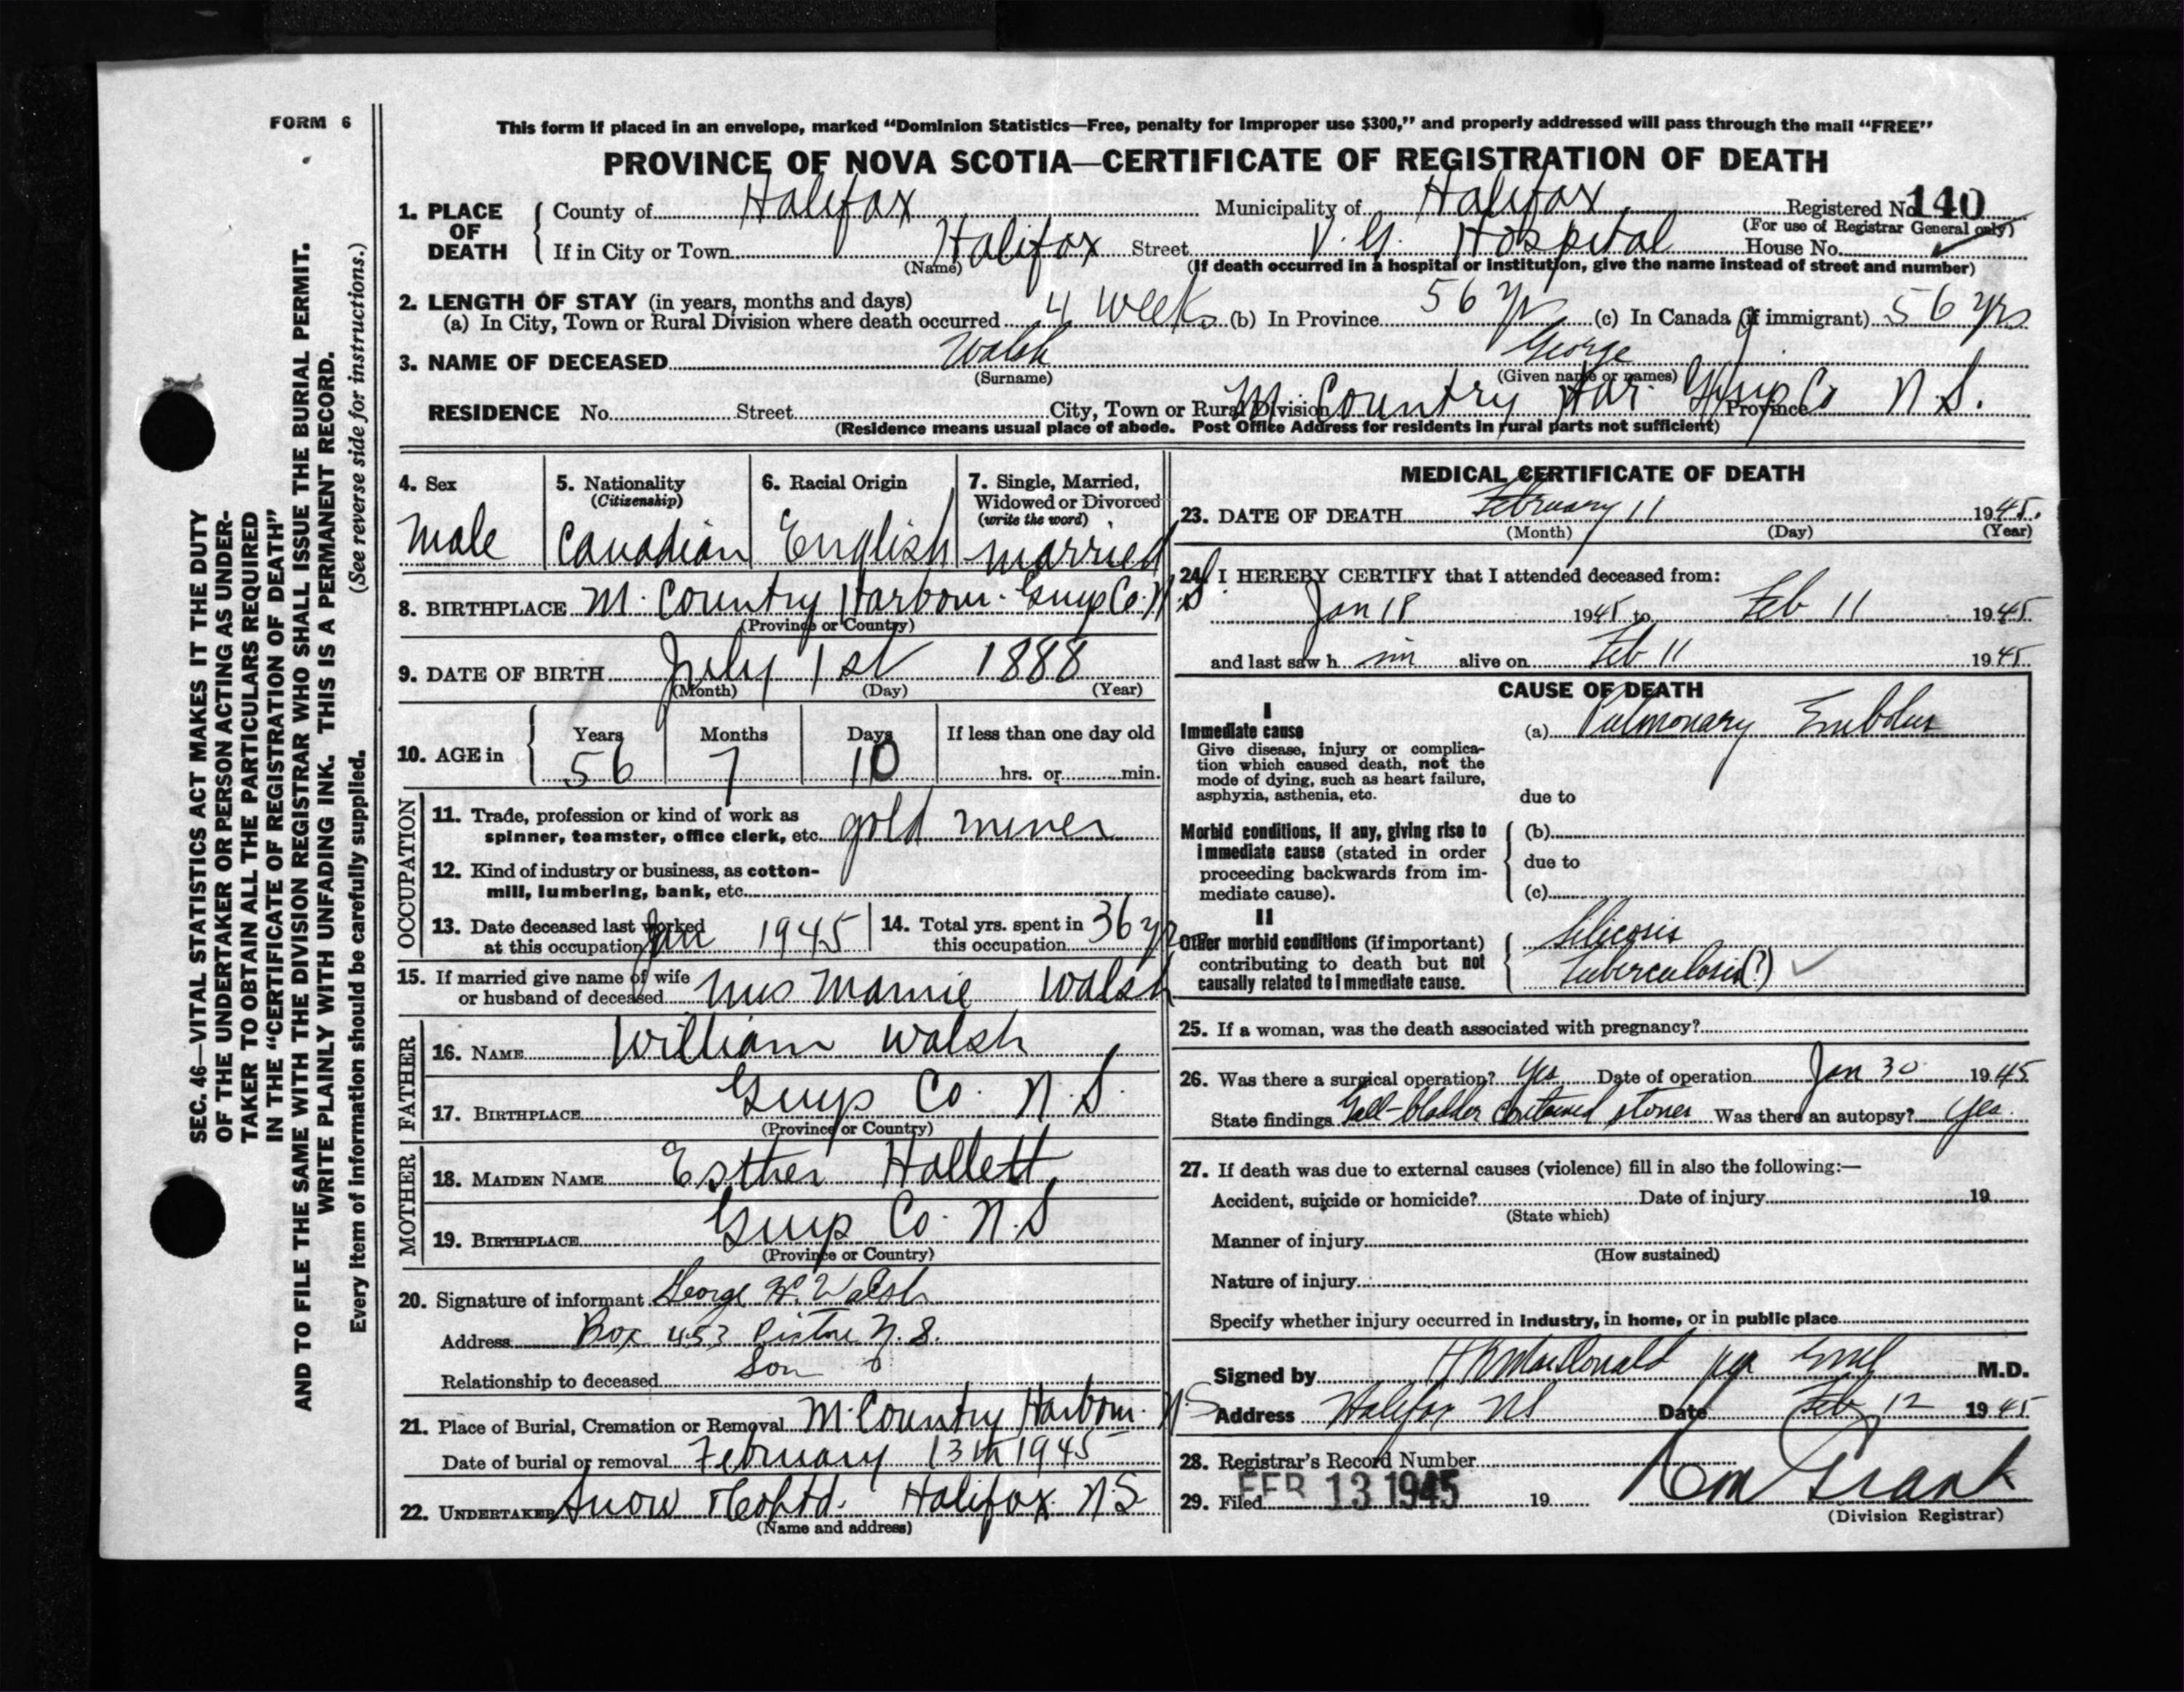 FORM 6
This form if placed in an envelope, marked “Dominion Statistics—Free, penalty for improper use $300,” and properly addressed will pass through the mail “FREE”
PROVINCE OF NOVA SCOTIA—CERTIFICATE OF REGISTRATION OF DEATH
SEC. 46—VITAL STATISTICS ACT MAKES IT THE DUTY
OF THE UNDERTAKER OR PERSON ACTING AS UNDER-
TAKER TO OBTAIN ALL THE PARTICULARS REQUIRED
IN THE “CERTIFICATE OF REGISTRATION OF DEATH”
AND TO FILE THE SAME WITH THE DIVISION REGISTRAR WHO SHALL ISSUE THE BURIAL PERMIT.
WRITE PLAINLY WITH UNFADING INK. THIS IS A PERMANENT RECORD.
Every item of information should be carefully supplied. (See reverse side for instructions.)
1. PLACE OF DEATH
County of Halifax Municipality of Halifax Registered No. 140
(For use of Registrar General only)
If in City or Town Halifax Street V.G. Hospital House No.
(Name) (If death occurred in a hospital or institution, give the name instead of street and number)
2. LENGTH OF STAY (in years, months and days)
(a) In City, Town or Rural Division where death occurred 4 weeks (b) In Province 56 yrs (c) In Canada (if immigrant) 56 yrs
3. NAME OF DECEASED Walsh George
(Surname) (Given name or names)
RESIDENCE No. Street City, Town or Rural Division M. Country Har. Guys Co Province N.S.
(Residence means usual place of abode. Post Office Address for residents in rural parts not sufficient)
4. Sex
Male
5. Nationality
(Citizenship)
Canadian
6. Racial Origin
English
7. Single, Married,
Widowed or Divorced
(write the word)
married
8. BIRTHPLACE M. Country Harbour. Guys Co. N.S.
(Province or Country)
9. DATE OF BIRTH July 1st 1888
(Month) (Day) (Year)
10. AGE in Years Months Days If less than one day old
56 7 10 hrs. or min.
OCCUPATION
11. Trade, profession or kind of work as
spinner, teamster, office clerk, etc. gold miner
12. Kind of industry or business, as cotton-
mill, lumbering, bank, etc.
13. Date deceased last worked
at this occupation Jan 1945
14. Total yrs. spent in
this occupation 36 yrs
15. If married give name of wife
or husband of deceased Mrs Mamie Walsh
FATHER
16. NAME William Walsh
17. BIRTHPLACE Guys Co. N.S.
(Province or Country)
MOTHER
18. MAIDEN NAME Esther Hallett
19. BIRTHPLACE Guys Co. N.S
(Province or Country)
20. Signature of informant George H. Walsh
Address Box 453 Pictou N.S.
Relationship to deceased Son
21. Place of Burial, Cremation or Removal M. Country Harbour. N.S
Date of burial or removal February 13th 1945
22. UNDERTAKER Snow & Co Ltd. Halifax N.S
(Name and address)
MEDICAL CERTIFICATE OF DEATH
23. DATE OF DEATH February 11 1945.
(Month) (Day) (Year)
24. I HEREBY CERTIFY that I attended deceased from:
Jan 18 1945 to Feb 11 1945
and last saw him alive on Feb 11 1945
CAUSE OF DEATH
I
Immediate cause
Give disease, injury or complica-
tion which caused death, not the
mode of dying, such as heart failure,
asphyxia, asthenia, etc.
(a) Pulmonary Embolus
due to
Morbid conditions, if any, giving rise to
immediate cause (stated in order
proceeding backwards from im-
mediate cause).
(b)
due to
(c)
II
Other morbid conditions (if important)
contributing to death but not
causally related to immediate cause.
Silicosis
Tuberculosis(?)
25. If a woman, was the death associated with pregnancy?
26. Was there a surgical operation? Yes Date of operation Jan 30 1945
State findings Gall-bladder contained stones Was there an autopsy? Yes.
27. If death was due to external causes (violence) fill in also the following:—
Accident, suicide or homicide? Date of injury 19
(State which)
Manner of injury
(How sustained)
Nature of injury
Specify whether injury occurred in industry, in home, or in public place
Signed by MacDonald M.D.
Address Halifax NS Date Feb 12 1945
28. Registrar's Record Number
29. Filed FEB 13 1945 19
(Division Registrar)